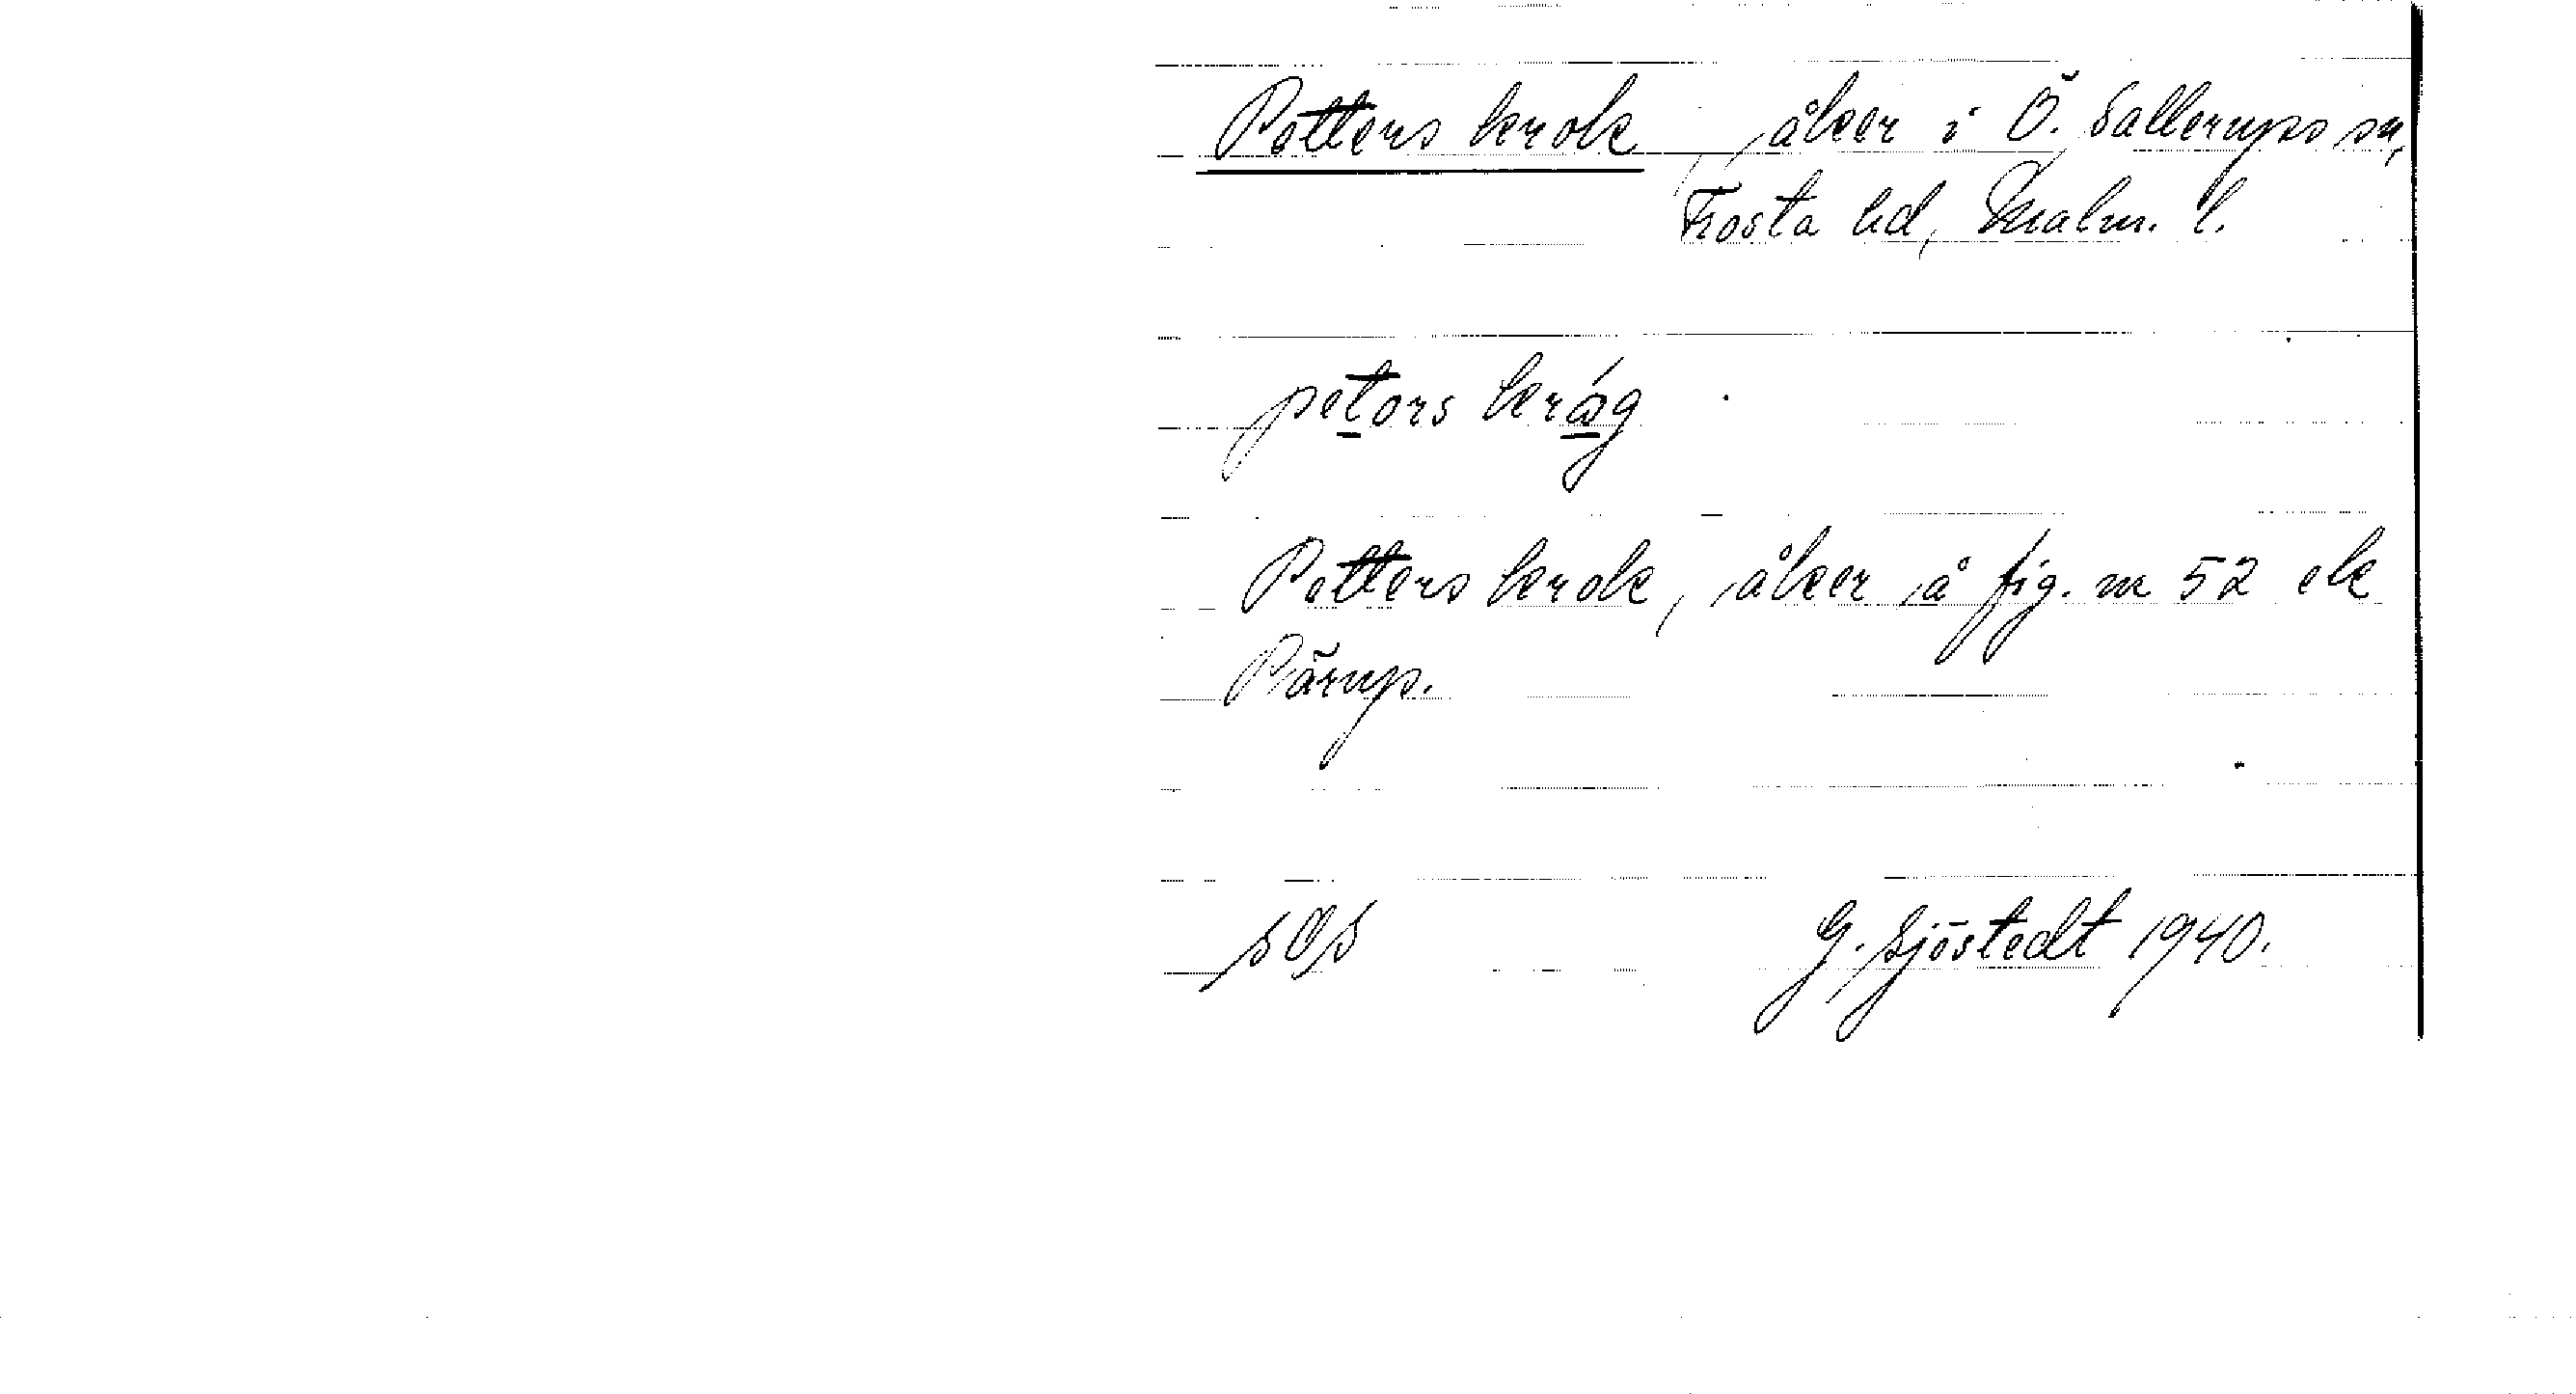 Petters krok, åker i Ö. Sallerups sn,
Frosta hd, Malm. l.
petors kråg
Petters krok, åker å fig. nr 52 ek
Pärup.
G. Sjöstedt 1940.